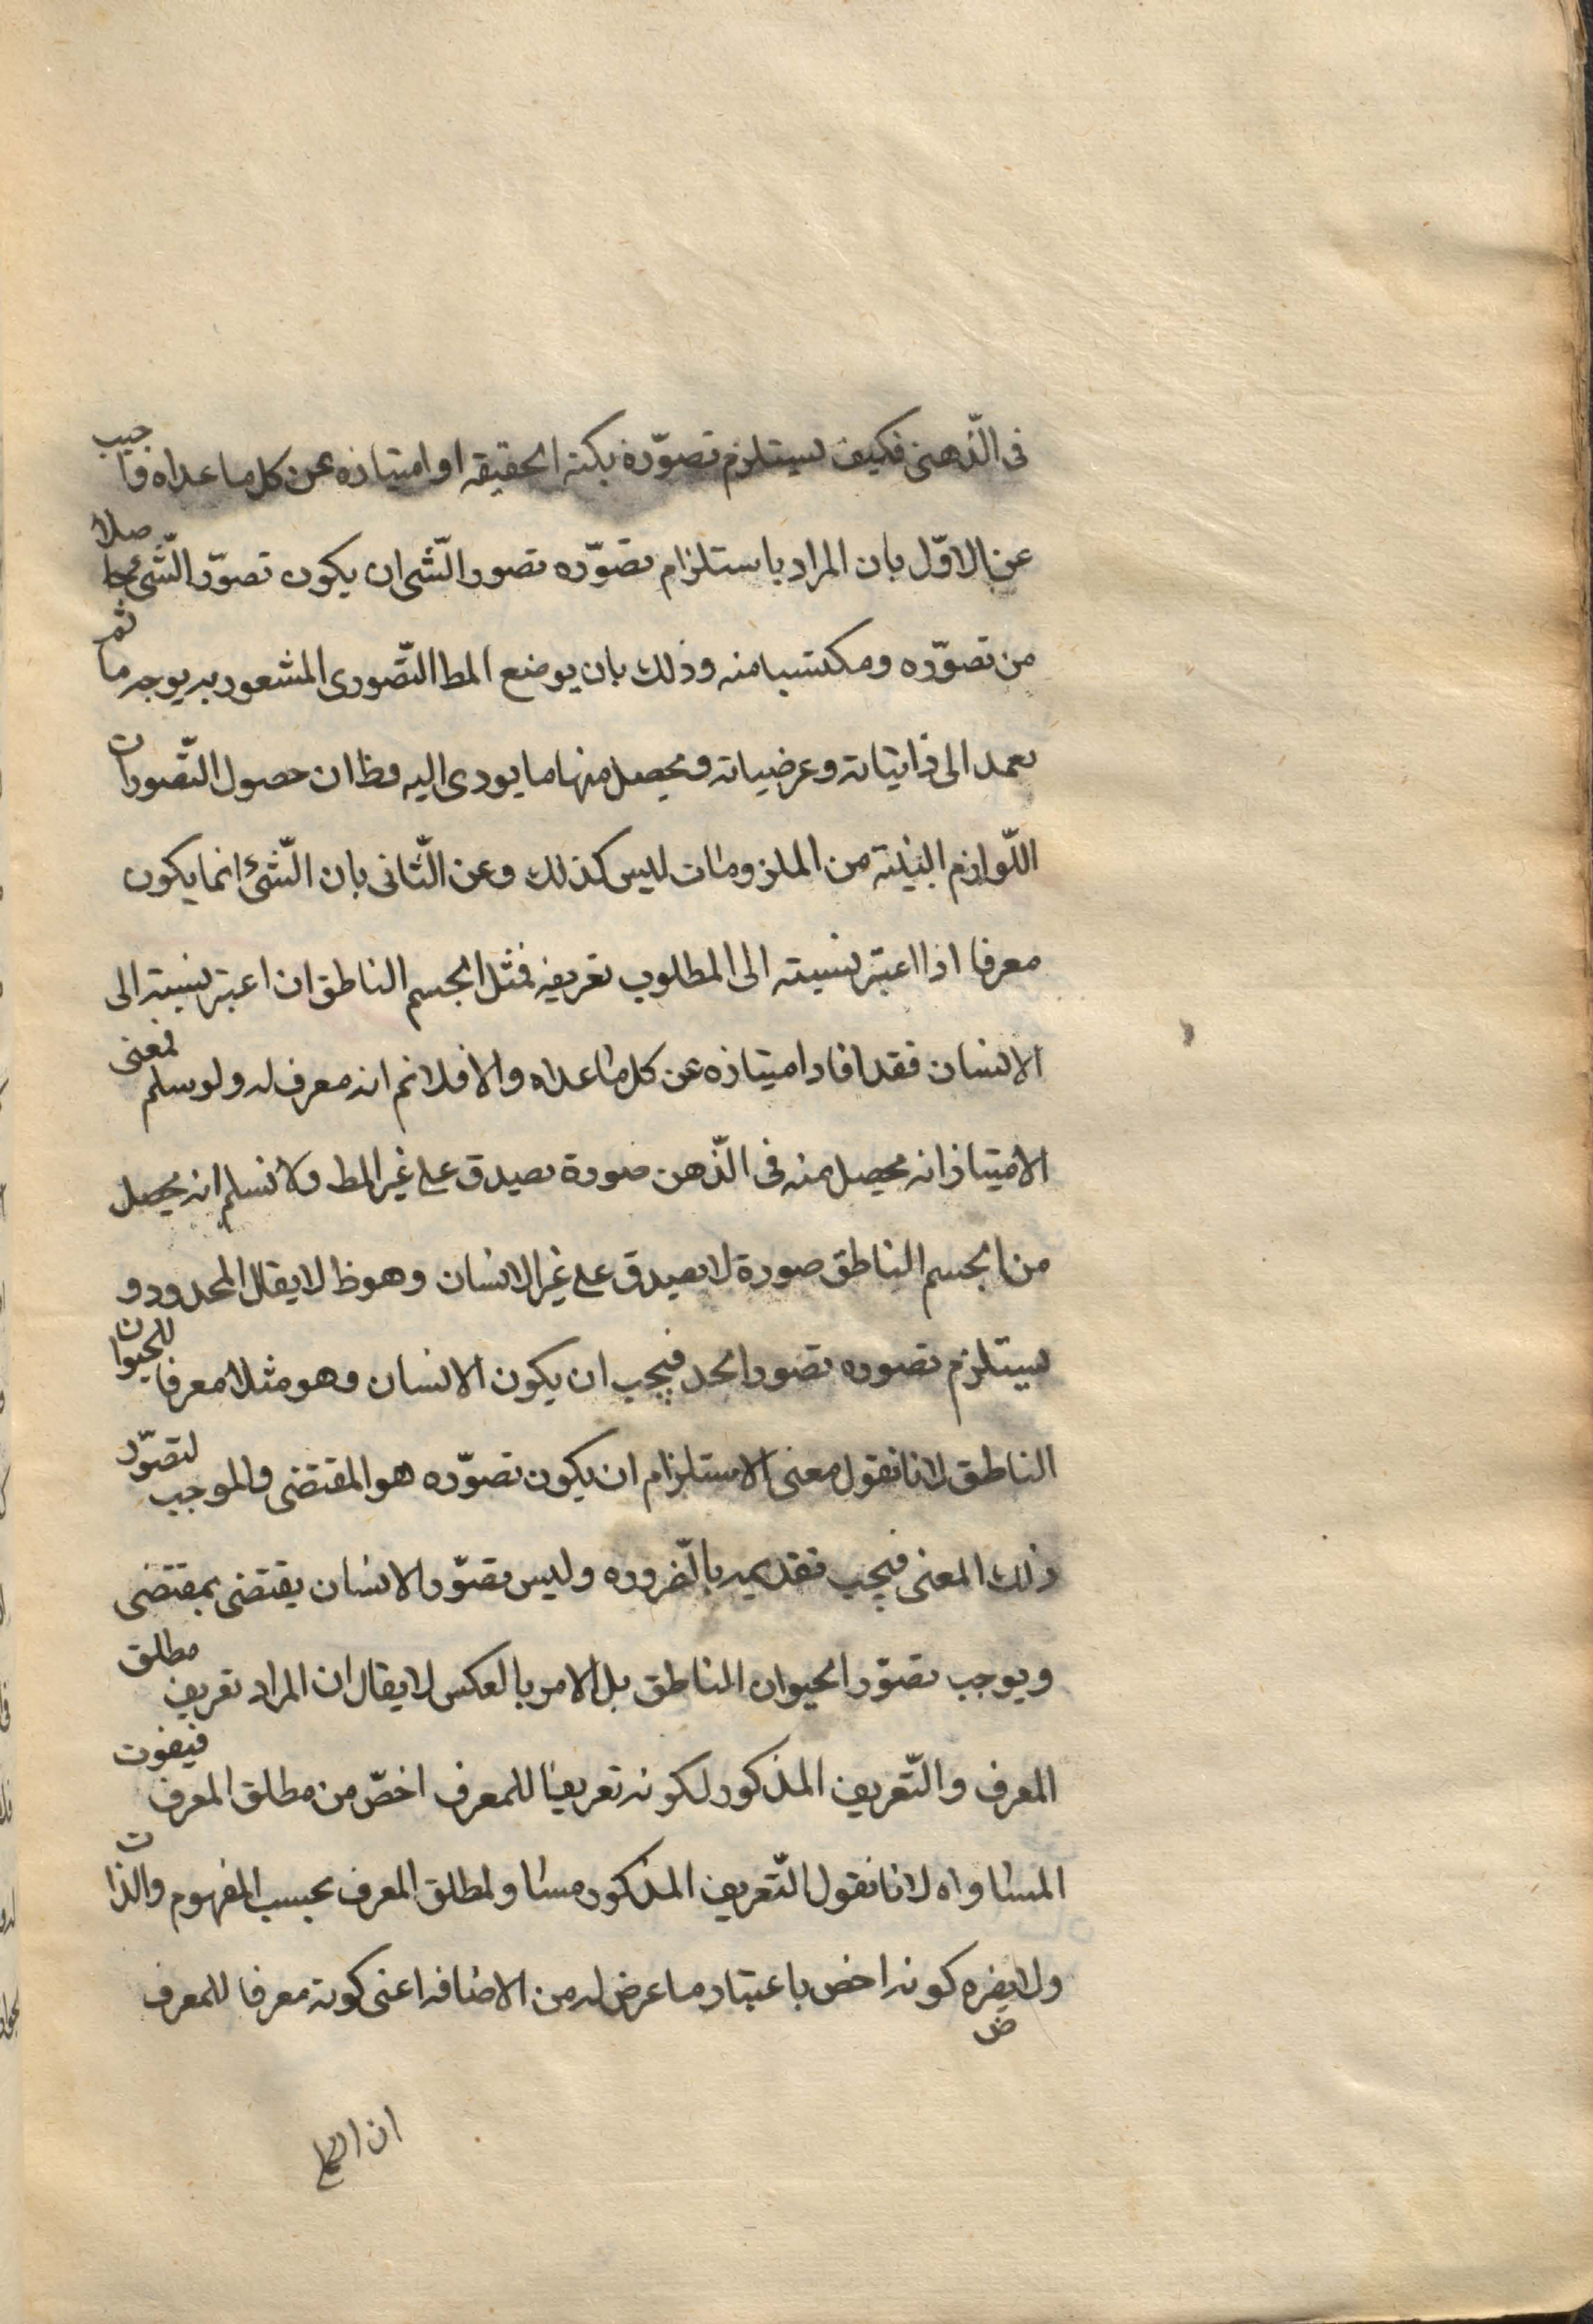 فى الّذهنى فكيف يستلزم تصوّره بكنه الحقيقه او امتيازه عن كل ما عداه واجيب
عن الاوّل بان المراد باستلزام تصوّره تصور الشّى ان يكون تصوّر الشّئ حاصلا
من تصوّره ومكتسبا منه وذلك بان يوضع المط التّصورى المشعور به بوجه ما ثم
يعمد الى ذاتياته وعرضياته فيحصل منها ما يودى اليه وظ ان حصول التّصورات
اللّوازم البينة من الملزومات ليس كذلك وعن الثّانى بان الشّئ انما يكون
معرفا اذا اعتبر نسبته الى المطلوب تعريفه فمثل الجسم الناطق ان اعتبر نسبته الى
الانسان فقد افاد امتيازه عن كل ما عداه والا فلا نم انه معرف له ولو سلم فمعنى
الامتياز انه يحصل منه فى الذّهن صورة يصدق على غير المط ولا نسلم انه يحصل
من الجسم الناطق صورة لا يصدق على غير الانسان وهو ظ لا يقال المحدود و
يستلزم تصوره تصور الحد فيجب ان يكون الانسان وهو مثلا معرفا للحيوان
الناطق لانا نقول معنى الاستلزام ان يكون تصوّره هو المقتضى والموجب لتصوّر
ذلك المعنى فيجب تقديمه بالضّروره وليس تصوّر الانسان يقتضى بمقتضى
ويوجب تصوّر الحيوان الناطق بل الامر بالعكس لا يقال ان المراد تعريف مطلق
المعرف والتّعريف المذكور لكونه تعريفا للمعرف اخصّ من مطلق المعرف فيفوت
المساواه لانا نقول التّعريف المذكور مساو لمطلق المعرف بحسب المفهوم والذات
ولا يضره كونه اخص باعتبار ما عرض له من الاضافه اعنى كونه معرفا للمعرف
ض